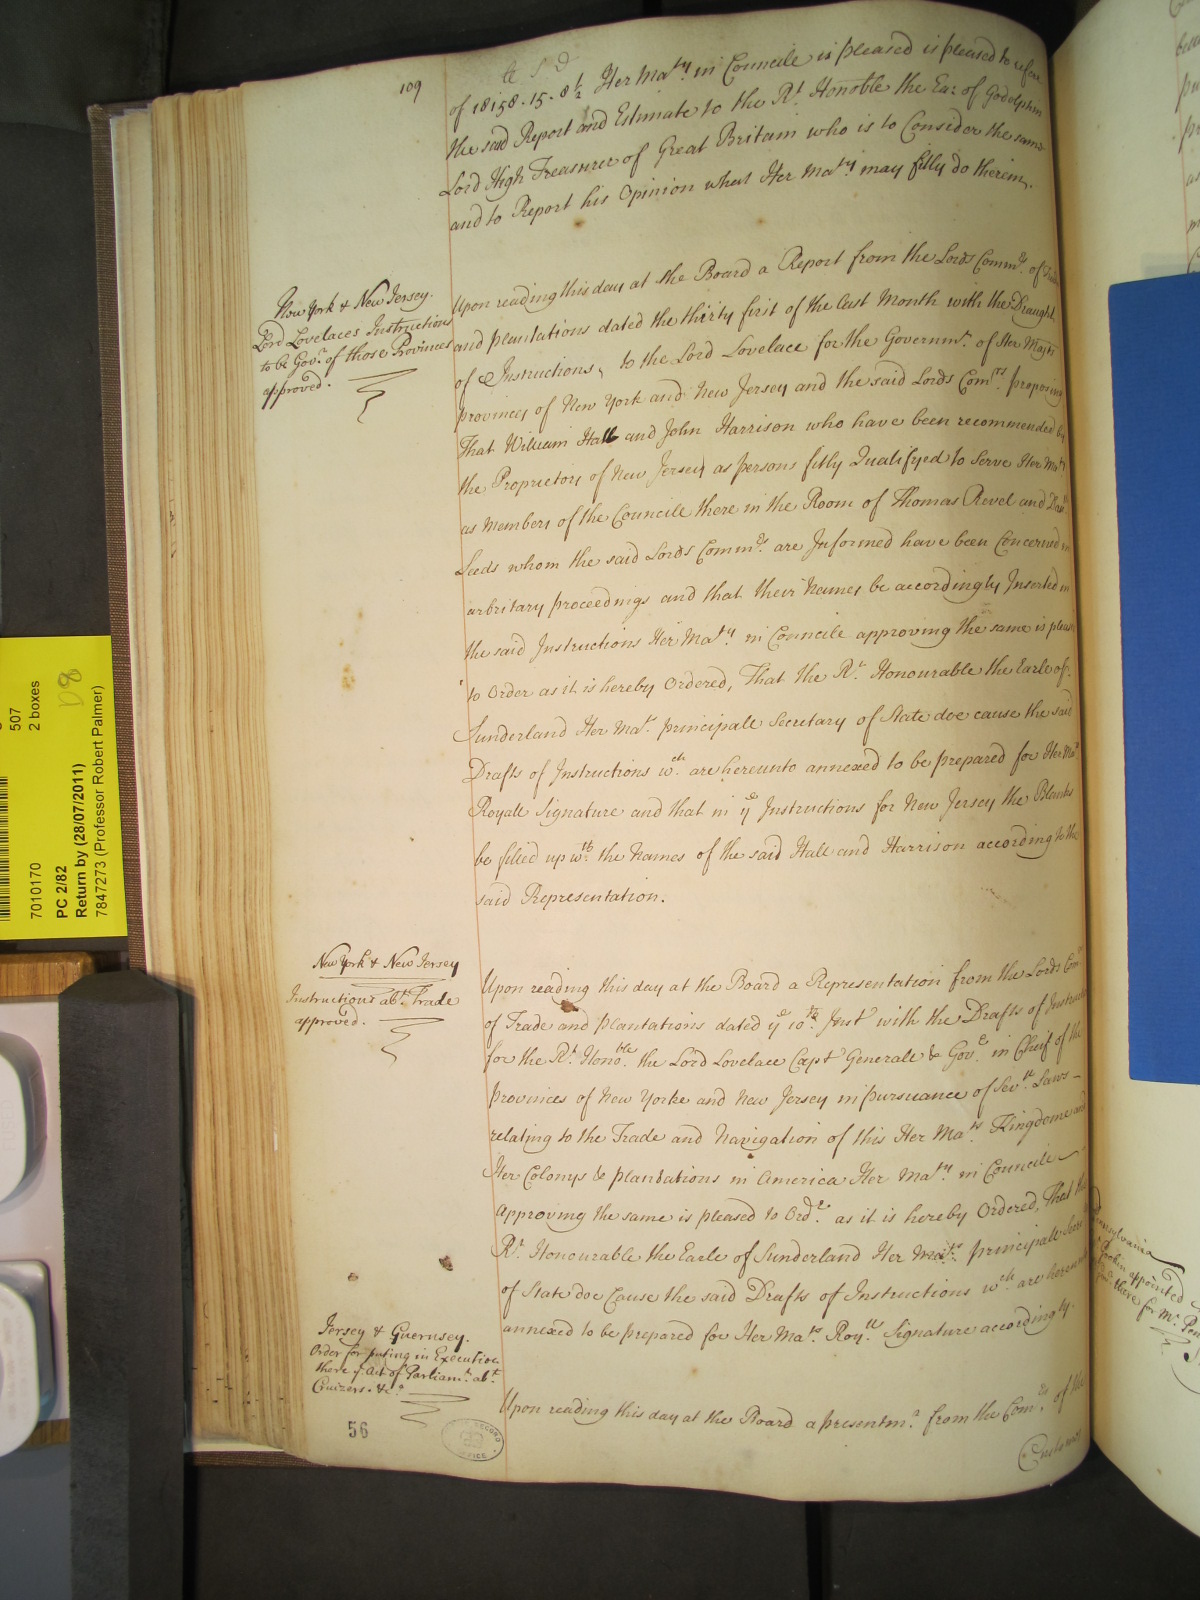 109
li S D
of 18158.15.8½ Her Maty. in Councile is pleased is pleased to refer
the said Report and Estimate to the Rt. Honoble the Ea: of Godolphin
Lord High Treasurer of Great Britain who is to Consider the same
and to Report his Opinion what Her Maty. may fitly do therein.
New York & New Jersey.
Lord Lovelaces Instructions
to be Govr. of those Provinces
approved.
Upon reading this day at the Board a Report from the Lords Commrs. of Trade
and plantations dated the thirty first of the last Month with the Draught
of Instructions, to the Lord Lovelace for the Governmt. of Her Majts
provinces of New York and New Jersey and the said Lords Comrs. proposing
That William Hall and John Harrison who have been recommended by
the Proprietors of New Jersey as persons fitly Qualifyed to Serve Her Maty
as Members of the Councile there in the Room of Thomas Revel and Danl.
Leeds whom the said Lords Commrs. are Informed have been Concerned in
arbritary proceedings and that their Names be accordingly Inserted in
the said Instructions Her Maty. in Councile approving the same is pleased
to Order as it is hereby Ordered, That the Rt. Honourable the Earle of
Sunderland Her Mats. principall Secretary of State doe cause the said
Drafts of Instructions wch. are hereunto annexed to be prepared for Her Mats
Royall Signature and that in ye Instructions for New Jersey the Blanks
be filled up wth. the Names of the said Hall and Harrison according to the
said Representation.
New York & New Jersey
Instructions abt. Trade
approved.
Upon reading this day at the Board a Representation from the Lords Comrs
of Trade and plantations dated ye 10th. Inst with the Drafts of Instructs
for the Rt. Honoble. the Lord Lovelace Capt Generall & Govr. in Cheif of the
Provinces of New Yorke and New Jersey in pursuance of Sevll. Laws
relating to the Trade and Navigation of this Her Mats. Kingdome and
Her Colonys & plantations in America Her Maty. in Councile
approving the same is pleased to Ordr. as it is hereby Ordered, That the
Rt. Honourable the Earle of Sunderland Her Mats. principall Secry
of State doe Cause the said Drafts of Instructions wch. are hereunto
annexed to be prepared for Her Mats Royll. Signature accordingly.
Jersey & Guernsey.
Order for puting in Execution
there ye Act of Parliamt. abt.
Cruizers. &ca.
Upon reading this day at the Board a presentmt. from the Comrs. of the
Customes
56
RECORD
OFFICE
507
2 boxes
D8
7010170
PC 2/82
Return by (28/07/2011)
7847273 (Professor Robert Palmer)
Pennsylvania
appointed
there for Mr. Pen